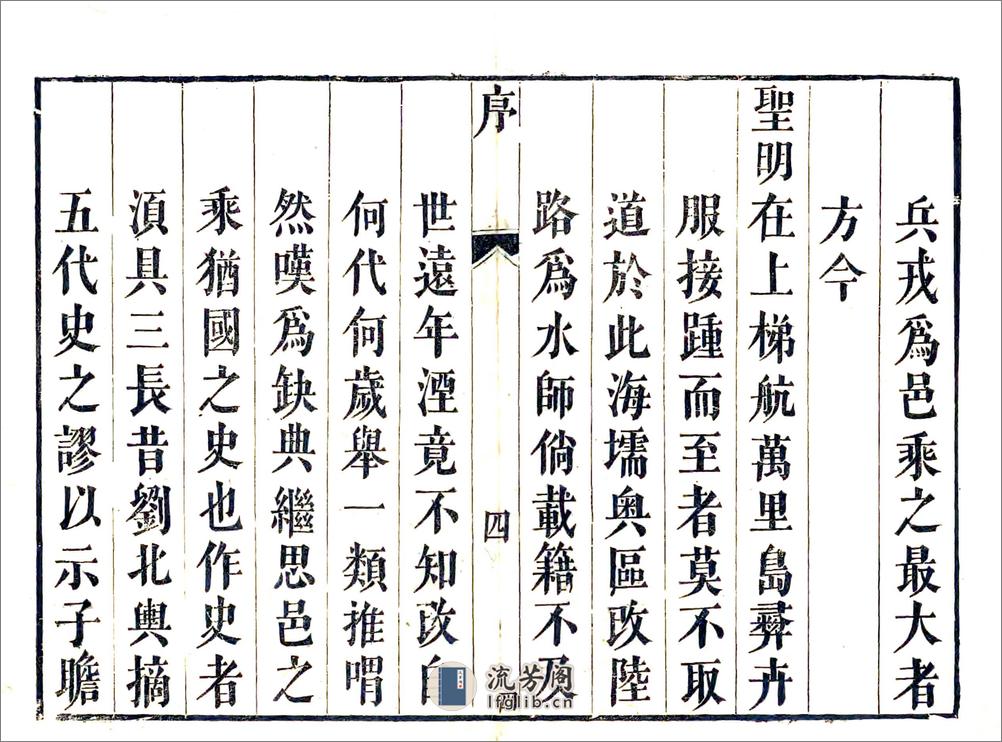 兵戎爲邑乘之最大者
方今
聖明在上梯航萬里島彛卉
服接踵而至者莫不取
道於此海壖奥區改陸
路爲水師倘載籍不及
序
四
世遠年湮竟不知改自
何代何歲舉一類推喟
然嘆爲缺典繼思邑之
乘猶國之史也作史者
湏具三長昔劉北輿摘
五代史之謬以示子瞻
流芳阁
lfglib.cn